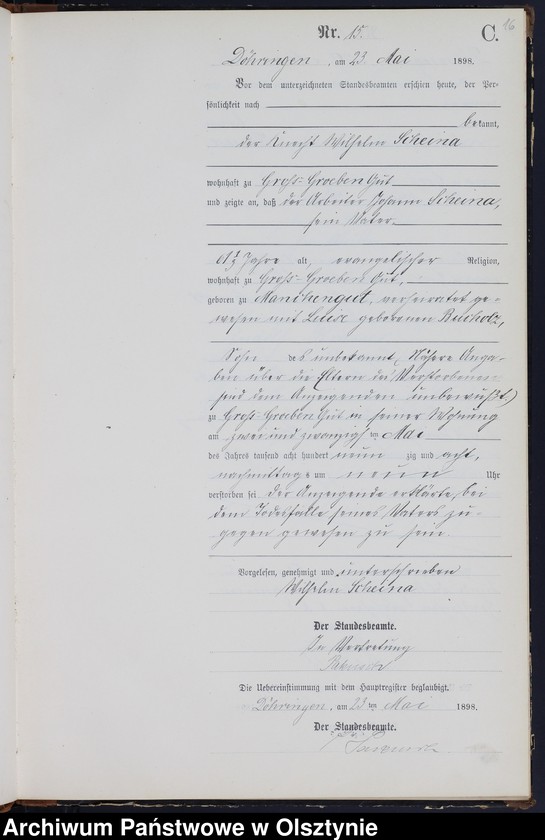 16
Nr. 15.
C.
Döhringen, am 23. Mai 1898.
Vor dem unterzeichneten Standesbeamten erschien heute, der Per-
sönlichkeit nach
bekannt,
der Knecht Wilhelm Scheina
wohnhaft zu Groß-Groeben Gut
und zeigte an, daß der Arbeiter Johann Scheina,
sein Vater.
Jahre alt, evangelischer Religion,
wohnhaft zu Groß-Groeben Gut,
geboren zu Manchengut, verheiratet ge-
wesen mit Luise geborenen Bucholz,
Sohn des unbekannt, (Nähere Anga-
ben über die Eltern des Verstorbenen
sind dem Anzeigenden unbewußt.)
zu Groß-Groeben Gut in seiner Wohnung
am zwei und zwanzigsten Mai
des Jahres tausend acht hundert neun zig und acht,
nachmittags um neun Uhr
verstorben sei. Der Anzeigende erklärte, bei
dem Todesfalle seines Vaters zu-
gegen gewesen zu sein.
Vorgelesen, genehmigt und unterschrieben
Wilhelm Scheina
Der Standesbeamte.
In Vertretung
Die Uebereinstimmung mit dem Hauptregister beglaubigt.
Döhringen, am 23ten Mai 1898.
Der Standesbeamte.
Archiwum Państwowe w Olsztynie
Numer